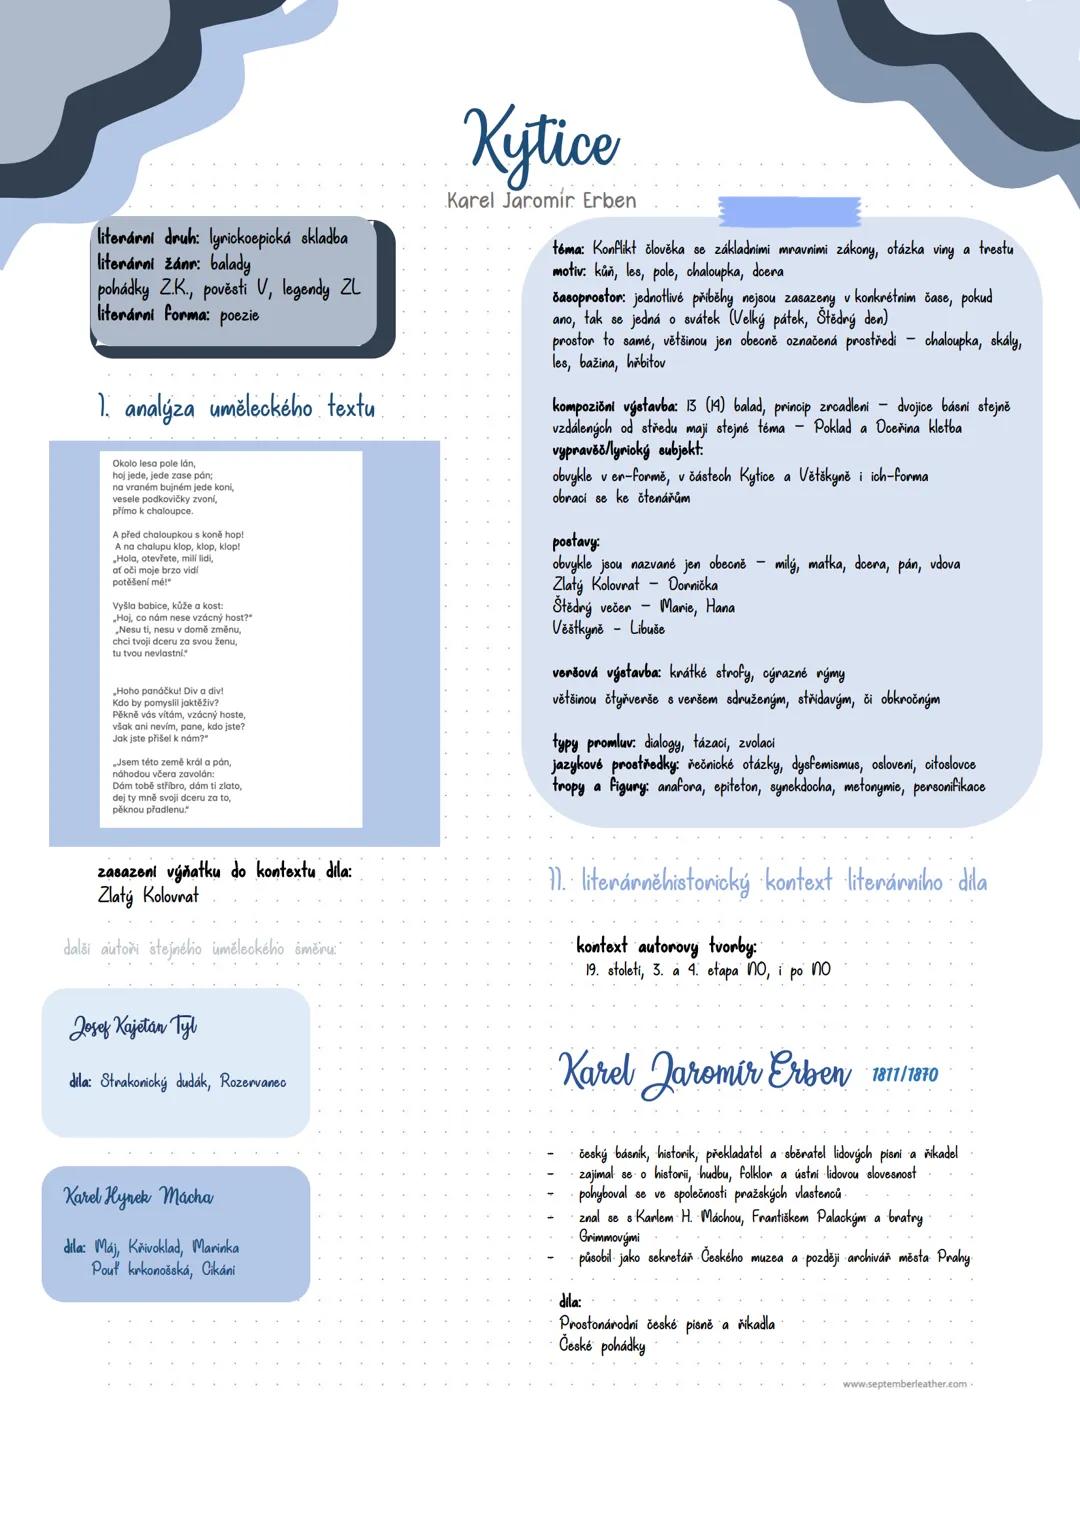 Kytice
Karel Jaromír Erben
literární druh: lyrickoepická skladba
literární žánr: balady
pohádky Z.K., pověsti V, legendy ZL
literární forma: poezie
I. analýza uměleckého textu
Okolo lesa pole lán,
hoj jede, jede zase pán;
na vraném bujném jede koni,
vesele podkovičky zvoní,
přímo k chaloupce.
A před chaloupkou s koně hop!
A na chalupu klop, klop, klop!
„Hola, otevřete, milí lidi,
ať oči moje brzo vidí
potěšení mé!“
Vyšla babice, kůže a kost:
„Hoj, co nám nese vzácný host?“
„Nesu ti, nesu v domě změnu,
chci tvoji dceru za svou ženu,
tu tvou nevlastní.“
„Hoho panáčku! Div a div!
Kdo by pomyslil jaktěživ?
Pěkně vás vítám, vzácný hoste,
však ani nevím, pane, kdo jste?
Jak jste přišel k nám?“
„Jsem této země král a pán,
náhodou včera zavolán:
Dám tobě stříbro, dám ti zlato,
dej ty mně svoji dceru za to,
pěknou přadlenu.“
zasazení výňatku do kontextu díla:
Zlatý Kolovrat
další autoři stejného uměleckého směru:
Josef Kajetán Tyl
díla: Strakonický dudák, Rozervanec
Karel Hynek Mácha
díla: Máj, Křivoklad, Marinka
Pouť krkonošská, Cikáni
téma: Konflikt člověka se základními mravními zákony, otázka viny a trestu
motiv: kůň, les, pole, chaloupka, dcera
časoprostor: jednotlivé příběhy nejsou zasazeny v konkrétním čase, pokud
ano, tak se jedná o svátek (Velký pátek, Štědrý den)
prostor to samé, většinou jen obecně označená prostředí – chaloupka, skály,
les, bažina, hřbitov
kompoziční výstavba: 13 (14) balad, princip zrcadlení – dvojice básní stejně
vzdálených od středu mají stejné téma – Poklad a Dceřina kletba
vypravěč/lyrický subjekt:
obvykle v er-formě, v částech Kytice a Větškyně i ich-forma
obrací se ke čtenářům
postavy:
obvykle jsou nazvané jen obecně – milý, matka, dcera, pán, vdova
Zlatý Kolovrat – Dornička
Štědrý večer – Marie, Hana
Věštkyně – Libuše
veršová výstavba: krátké strofy, cýrazné rýmy
většinou čtyřverše s veršem sdruženým, střídavým, či obkročným
typy promluv: dialogy, tázací, zvolací
jazykové prostředky: řečnické otázky, dysfemismus, oslovení, citoslovce
tropy a figury: anafora, epiteton, synekdocha, metonymie, personifikace
II. literárněhistorický kontext literárního díla
kontext autorovy tvorby:
19. století, 3. a 4. etapa NO, i po NO
Karel Jaromír Erben 1811/1870
– český básník, historik, překladatel a sběratel lidových písní a říkadel
– zajímal se o historii, hudbu, folklor a ústní lidovou slovesnost
– pohyboval se ve společnosti pražských vlastenců
– znal se s Karlem H. Máchou, Františkem Palackým a bratry
Grimmovými
– působil jako sekretář Českého muzea a později archivář města Prahy
díla:
Prostonárodní české písně a říkadla
České pohádky
www.septemberleather.com